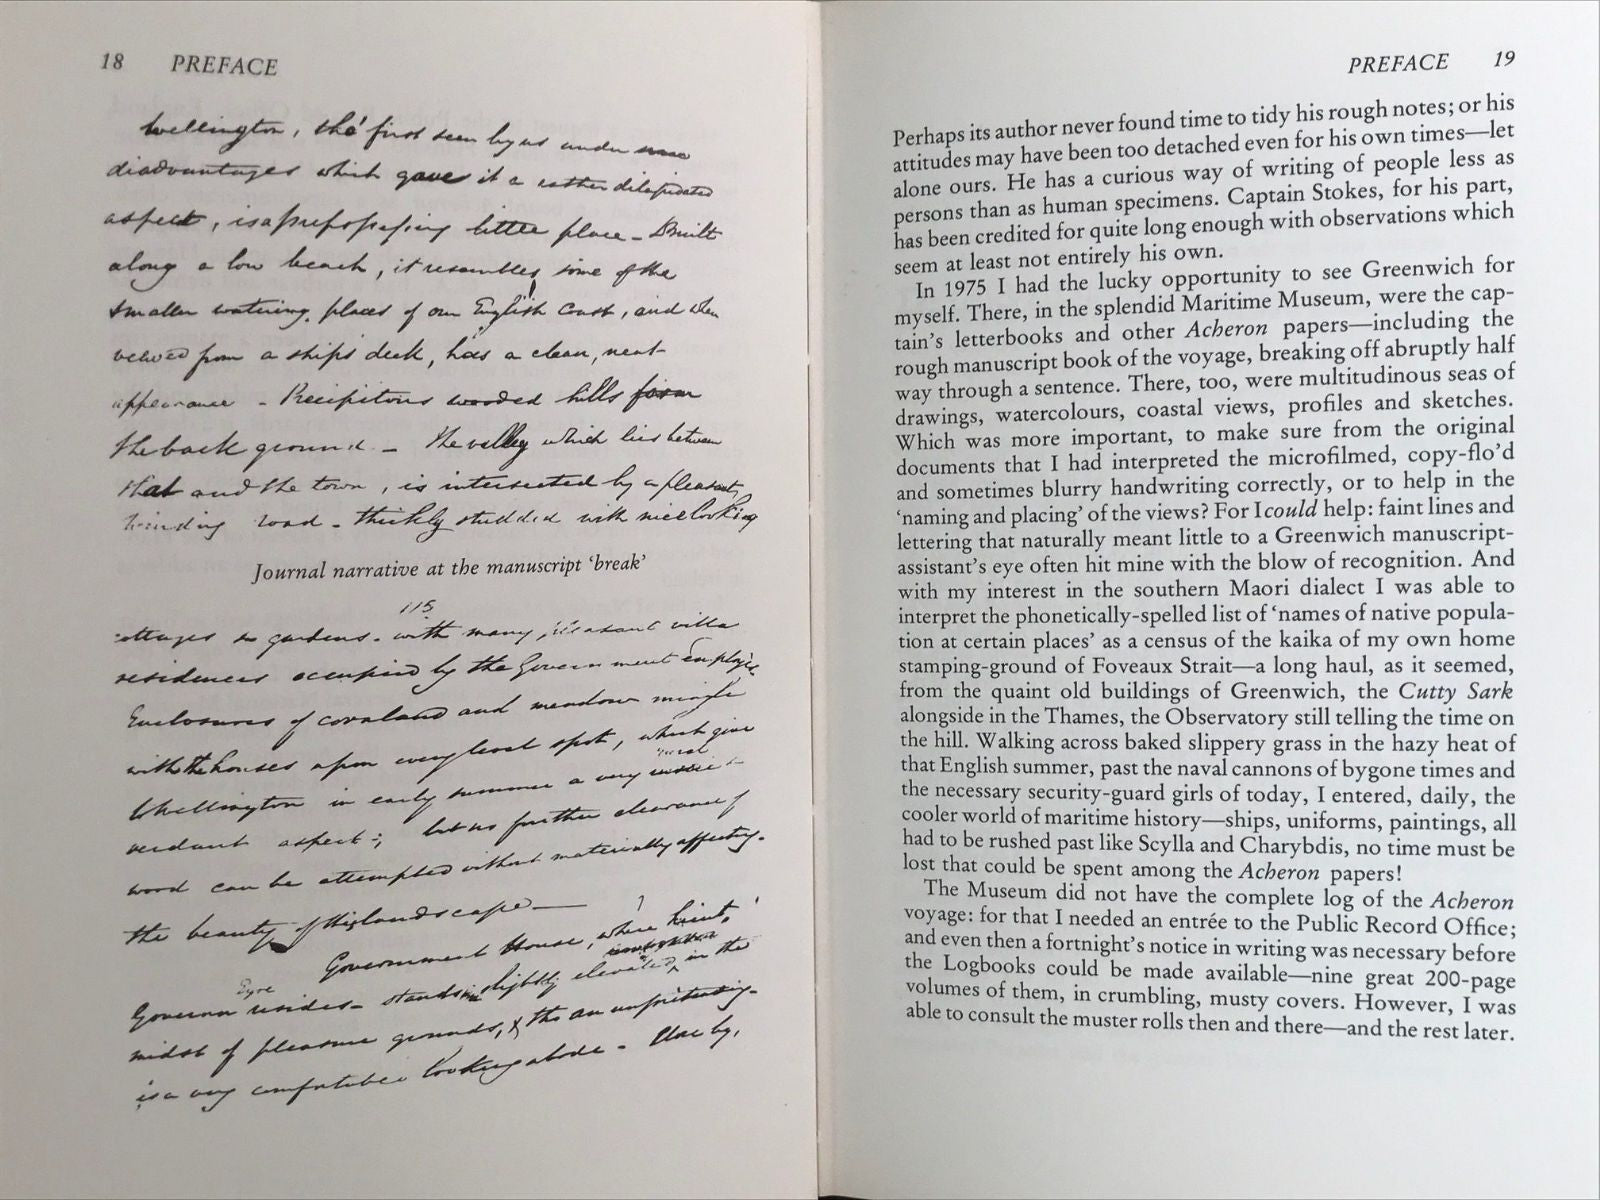 18 PREFACE
Wellington, tho' first seen by us under some
disadvantages which gave it a rather dilapidated
aspect, is a prepossessing little place - Built
along a low beach, it resembles some of the
smaller watering places of our English Coast, and when
veiwed from a ships deck, has a clean, neat
appearance - Precipitous wooded hills form
the back ground - The valley which lies between
that and the town, is intersected by a pleasant
winding road - thickly studded with nice looking
Journal narrative at the manuscript ‘break’
115
cottages in gardens - with many pleasant villa
residences occupied by the Government employés
Enclosures of cornland and meadow mingle
with the houses upon every level spot, which give
rural
Whellington in early summer a very
verdant aspect; but no further clearance of
wood can be attempted without materially affecting
the beauty of the landscape —
Government House, where
Eyre
Governor resides - stands slightly elevated, in the
midst of pleasure grounds, & tho an unpretending
is a very comfortable looking abode - Close by,
PREFACE 19
Perhaps its author never found time to tidy his rough notes; or his
attitudes may have been too detached even for his own times—let
alone ours. He has a curious way of writing of people less as
persons than as human specimens. Captain Stokes, for his part,
has been credited for quite long enough with observations which
seem at least not entirely his own.
In 1975 I had the lucky opportunity to see Greenwich for
myself. There, in the splendid Maritime Museum, were the cap-
tain's letterbooks and other Acheron papers—including the
rough manuscript book of the voyage, breaking off abruptly half
way through a sentence. There, too, were multitudinous seas of
drawings, watercolours, coastal views, profiles and sketches.
Which was more important, to make sure from the original
documents that I had interpreted the microfilmed, copy-flo'd
and sometimes blurry handwriting correctly, or to help in the
‘naming and placing’ of the views? For I could help: faint lines and
lettering that naturally meant little to a Greenwich manuscript-
assistant's eye often hit mine with the blow of recognition. And
with my interest in the southern Maori dialect I was able to
interpret the phonetically-spelled list of ‘names of native popula-
tion at certain places’ as a census of the kaika of my own home
stamping-ground of Foveaux Strait—a long haul, as it seemed,
from the quaint old buildings of Greenwich, the Cutty Sark
alongside in the Thames, the Observatory still telling the time on
the hill. Walking across baked slippery grass in the hazy heat of
that English summer, past the naval cannons of bygone times and
the necessary security-guard girls of today, I entered, daily, the
cooler world of maritime history—ships, uniforms, paintings, all
had to be rushed past like Scylla and Charybdis, no time must be
lost that could be spent among the Acheron papers!
The Museum did not have the complete log of the Acheron
voyage: for that I needed an entrée to the Public Record Office;
and even then a fortnight's notice in writing was necessary before
the Logbooks could be made available—nine great 200-page
volumes of them, in crumbling, musty covers. However, I was
able to consult the muster rolls then and there—and the rest later.